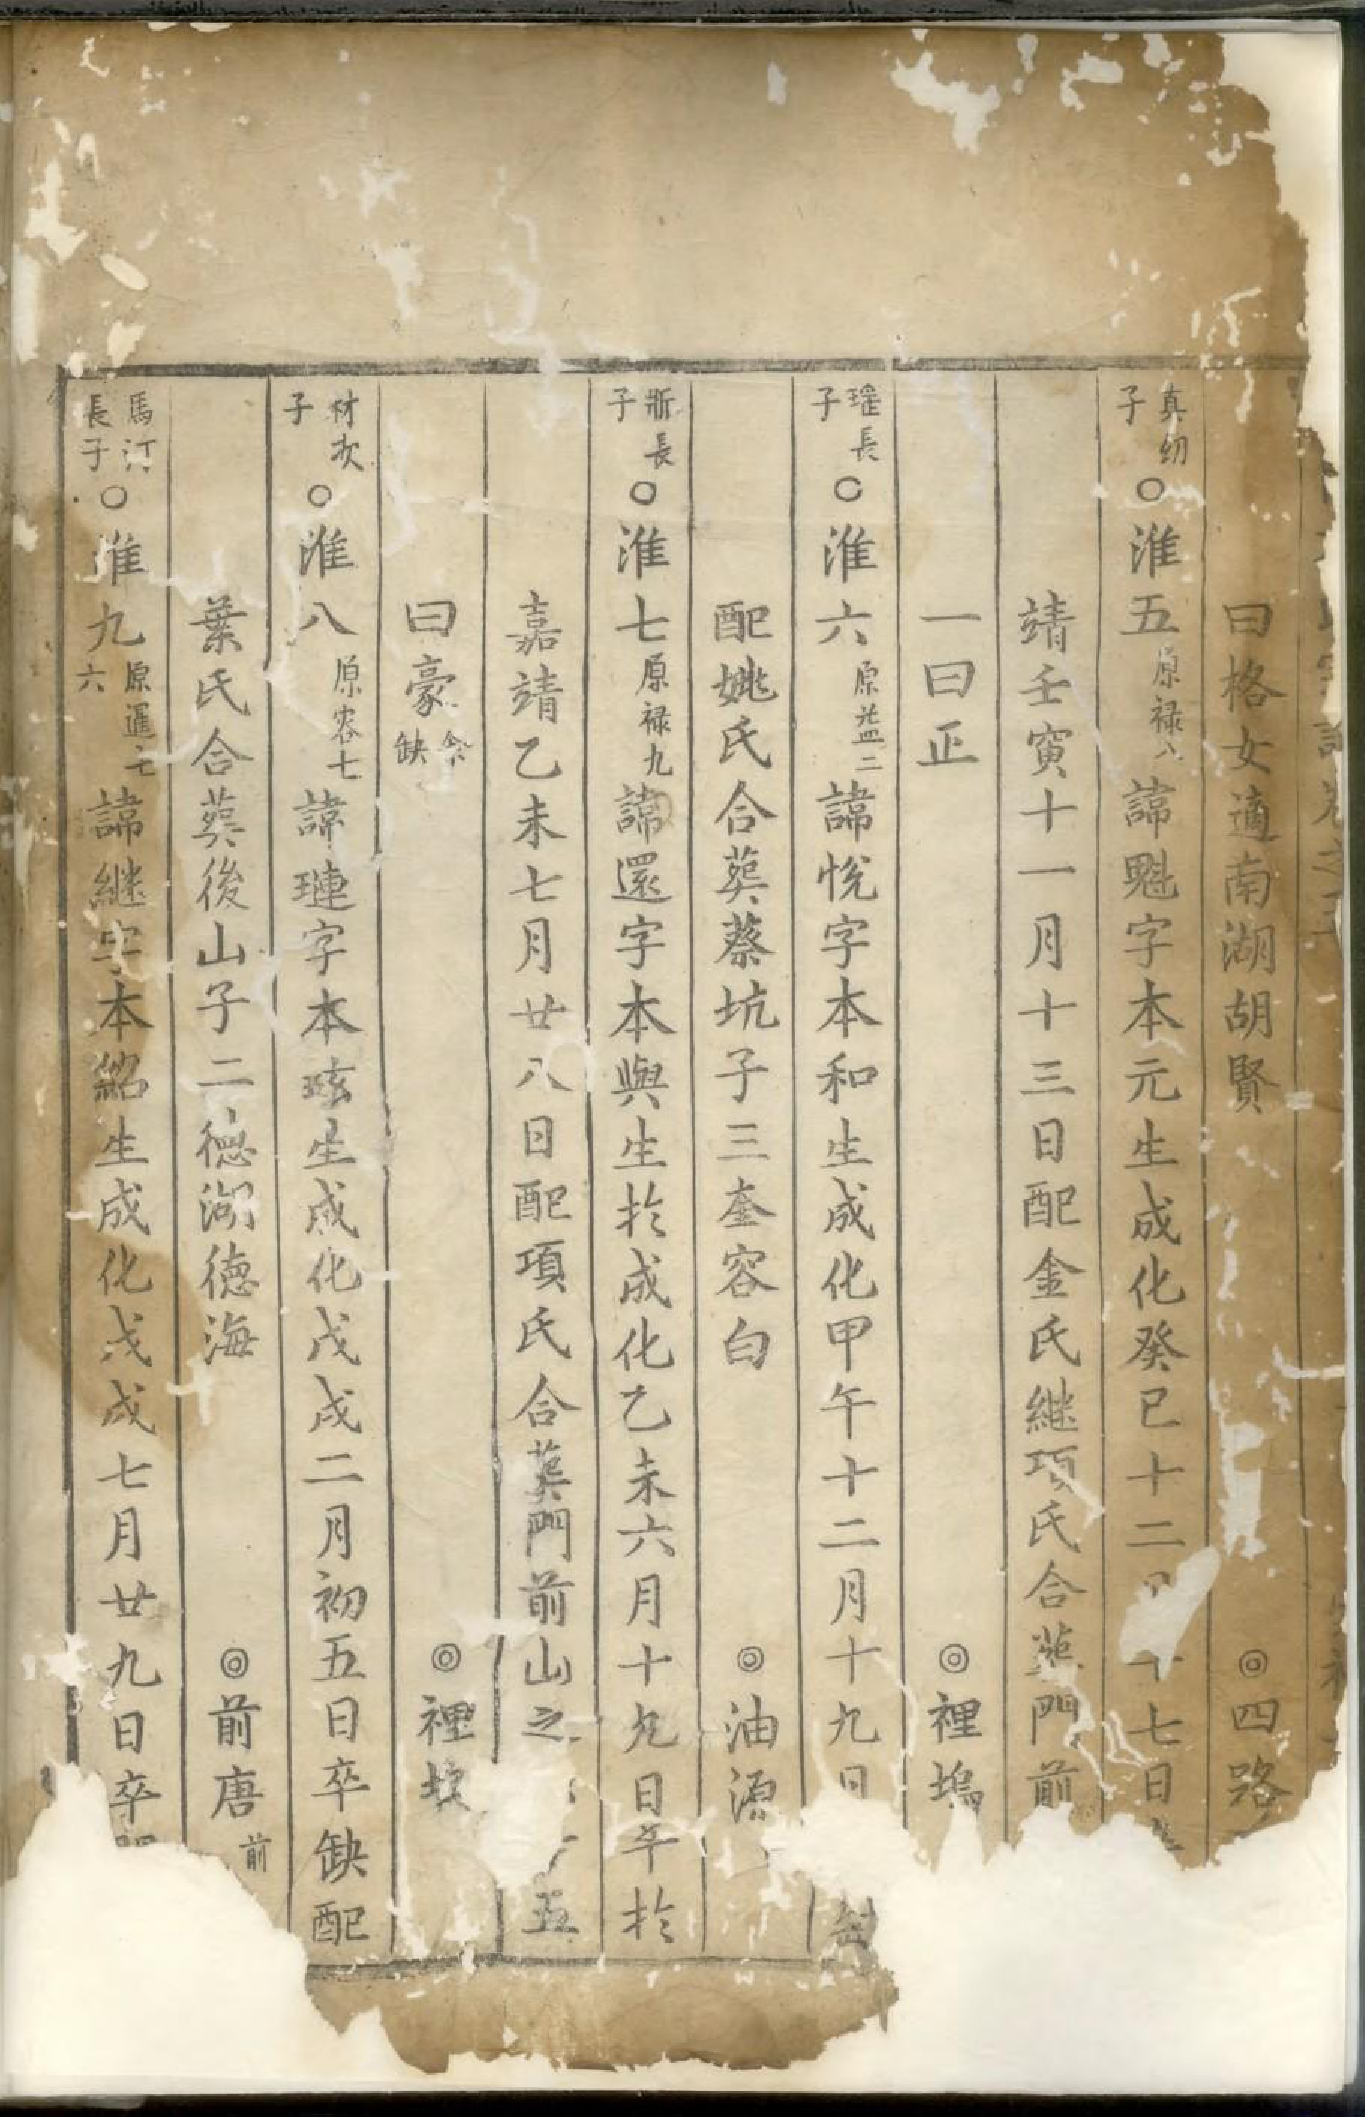 曰格女適南湖胡賢 ◎四路
真幼子○淮五原禄八諱魁字本元生成化癸巳十二 十七日
靖壬寅十一月十三日配金氏継項氏合葬門前
一曰正 ◎裡塢
瑶長子○淮六原益二諱悅字本和生成化甲午十二月十九日
配姚氏合葬蔡坑子三奎容白 ◎油源
長子○淮七原禄九諱還字本與生於成化乙未六月十九日卒於
嘉靖乙未七月廿八日配項氏合葬門前山之 五
曰豪余缺 ◎裡坟
材次子○淮八原容七諱璉字本玹生成化戊戌二月初五日卒缺配
葉氏合葬後山子二德湖德海 ◎前唐前
馬汀長子○淮九原暹七六諱継字本綿生成化戊戌七月廿九日卒